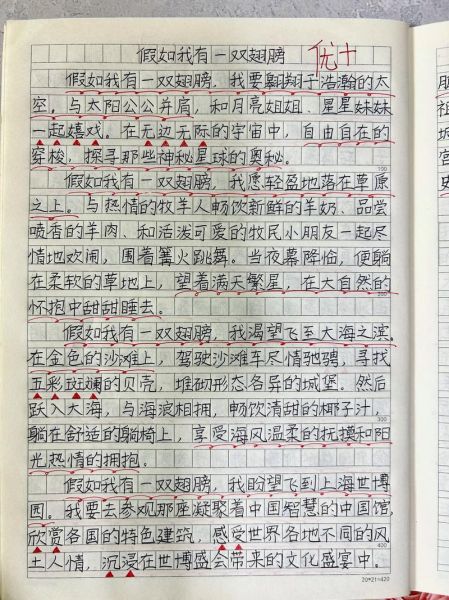 假如我有一双翅膀
优+
假如我有一双翅膀，我要翱翔于浩瀚的太
空。与太阳公公并肩，和月亮姐姐、星星妹妹
一起嬉戏。在无边无际的宇宙中，自由自在的
穿梭，探寻那些神秘星球的奥秘。
100
假如我有一双翅膀，我愿轻盈地落在草原
之上。与热情的牧羊人畅饮新鲜的羊奶、品尝
喷香的羊肉、和活泼可爱的牧民小朋友一起尽
情地欢闹，围着篝火跳舞。当夜幕降临，便躺
在柔软的草地上，望着满天繁星，在大自然的
200
怀抱中甜甜睡去。
假如我有一双翅膀，我渴望飞至大海之滨。
在金色的沙滩上，驾驶沙滩车尽情驰骋，寻找
五彩斑斓的贝壳，堆砌形态各异的城堡。然后
跃入大海，与海浪相拥，畅饮清甜的椰子汁，
300
躺在舒适的躺椅上，享受海风温柔的抚摸和阳
光热情的拥抱。
假如我有一双翅膀，我盼望飞到上海世博
园。我要去参观那座凝聚着中国智慧的中国馆，
欣赏各国的特色建筑，感受世界各地不同的风
400
土人情，沉浸在世博盛会带来的文化盛宴中。
20*21=420